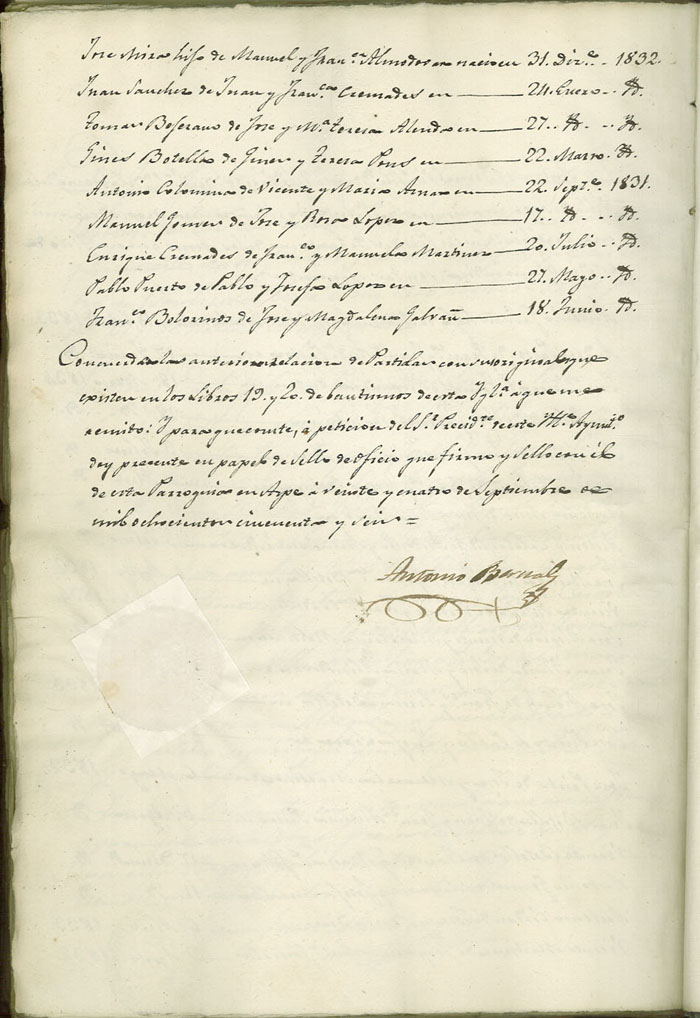 Jose Mira hijo de Manuel y Fran.ca Almodovar nacio en 31. Diz.e - 1832.
Juan Sanchez de Juan y Fran.ca Cremades en 24. Enero - Yd.
Tomas Beserano de Jose y M.a Teresa Alenda en 27. Yd. - Yd.
Gines Botella de Gines y Teresa Pons en 22. Marzo. Yd.
Antonio Colomina de Vicente y Maria Aznar en 22. Sept.e 1831.
Manuel Gomez de Jose y Rosa Lopez en 17. Yd. - Yd.
Enrique Cremades de Fran.co y Manuela Martinez 20. Julio - Yd.
Pablo Puerto de Pablo y Josefa Lopez en 27. Mayo - Yd.
Fran.co Bolorinos de Jose y Magdalena Galvañ 18. Junio. Yd.
Concuerda la anterior relacion de Partidas con sus originales que
existen en los Libros 19. y 20. de bautismos de esta Ygl.a à que me
remito: Y para que conste, à peticion del S.r Presid.te de este M.e Ayunt.o
doy presente en papel de sello de oficio que firmo y sello con el
de esta Parroquia en Aspe à veinte y cuatro de Septiembre de
mil ochocientos cincuenta y seis =
Antonio Bernal